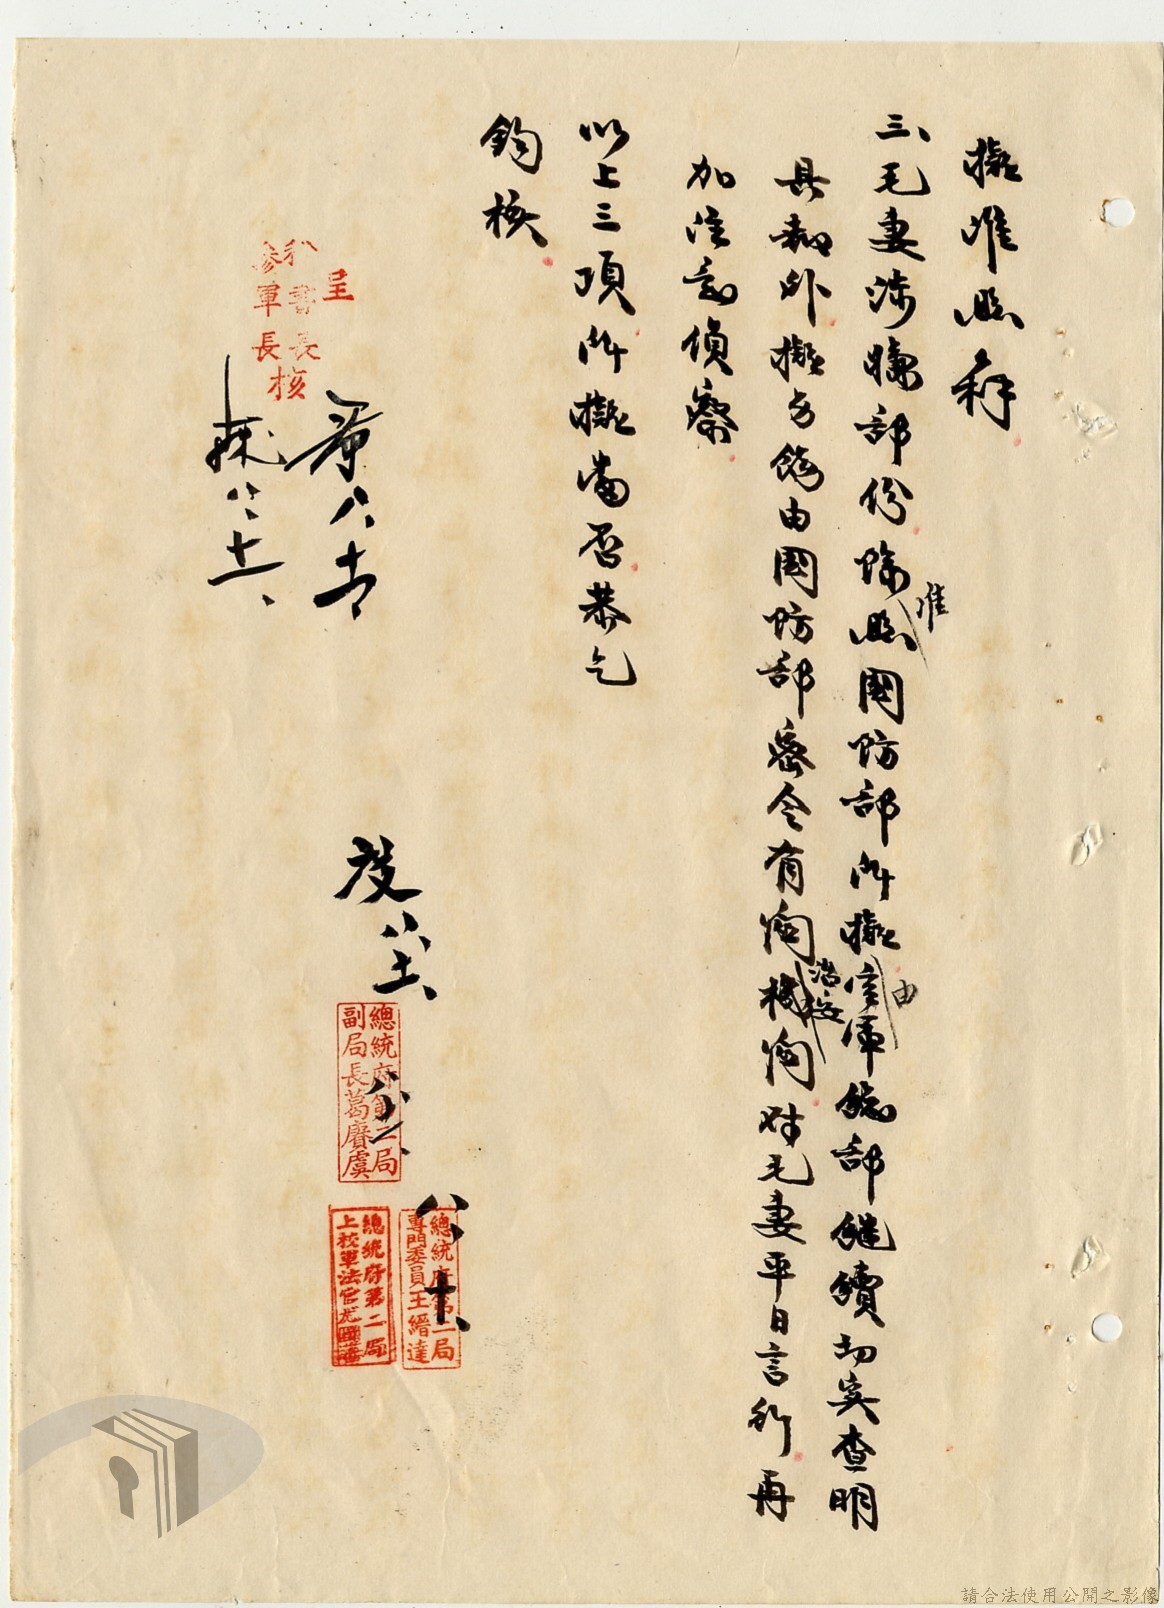 擬准照辦
三、毛妻涉嫌部份除照國防部所擬空軍總部繼續切實查明
准
由
具報外擬另飭由國防部密令有關機關對毛妻平日言行再
治安
加注意偵察
以上三項所擬當否恭乞
鈞核
呈
秘書長
參軍長
核
八
八十一
八
總統府第二局
副局長葛賡虞
總統府第二局
專門委員王縉達
總統府第二局
上校軍法官尤
請合法使用公開之影像